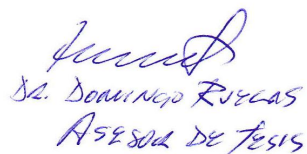 Dr. Domingo Ruegas
Asesor de Tesis